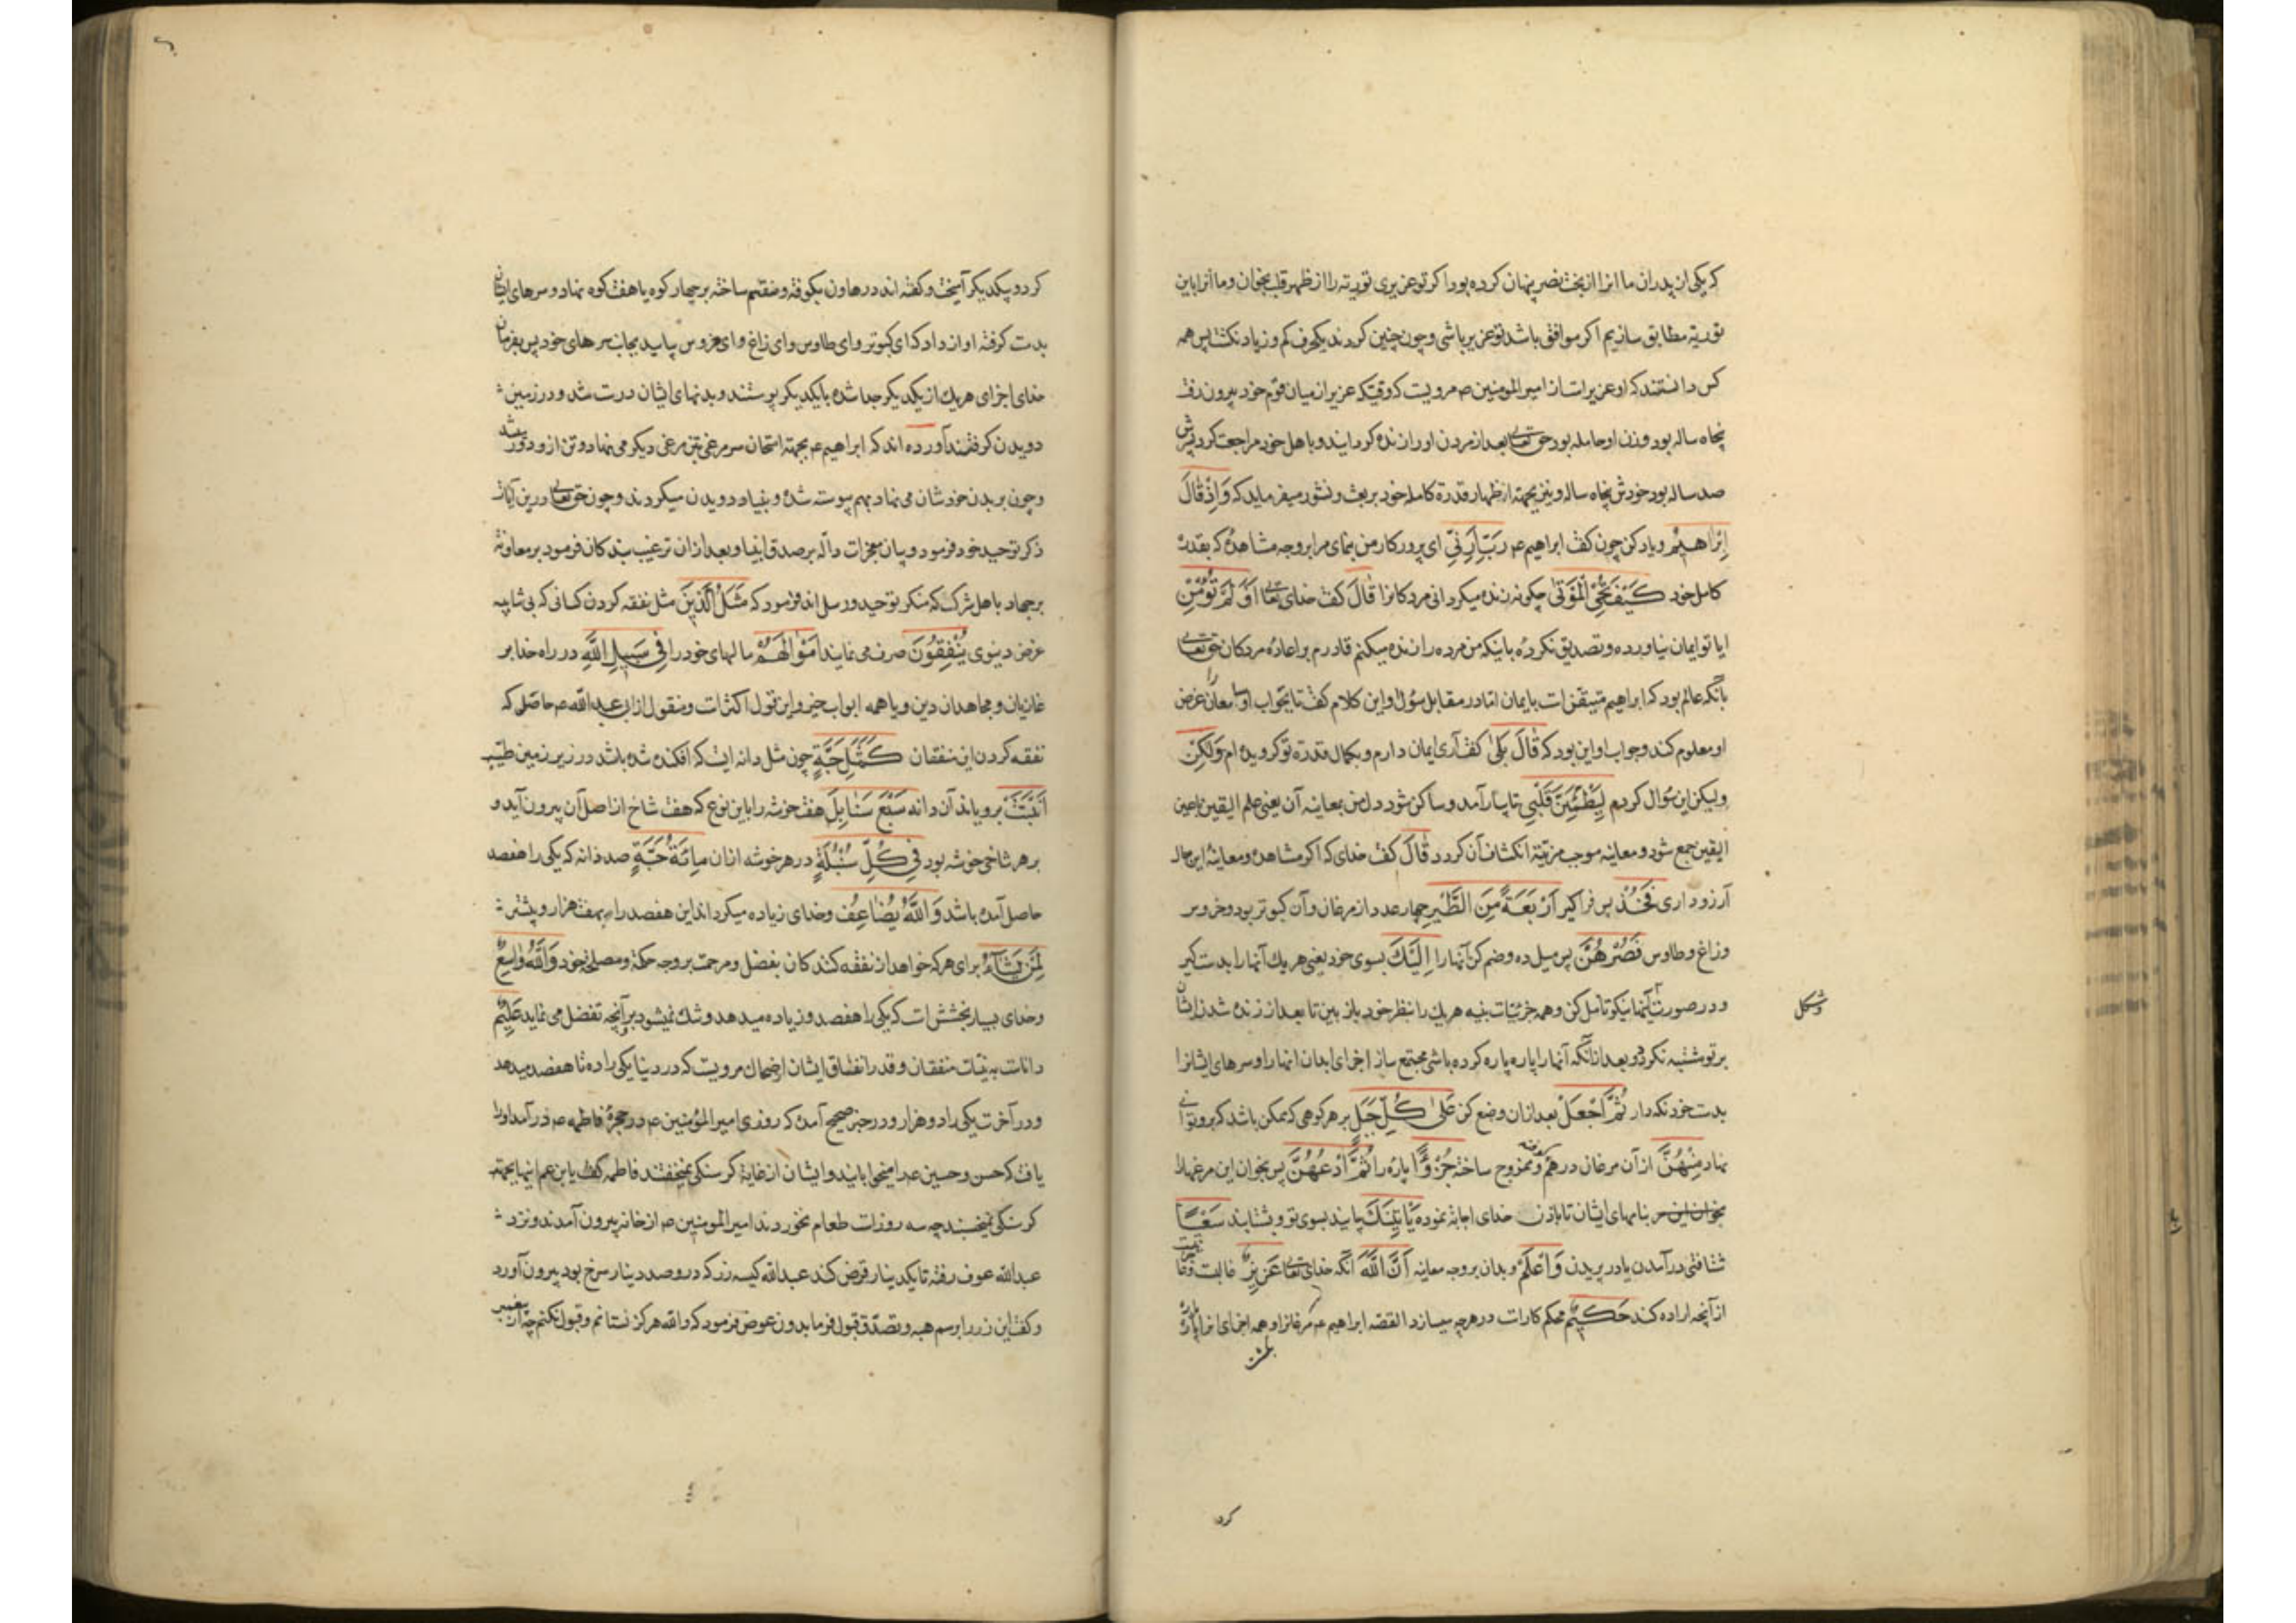 که یکی از پدران ما انرا از بخت نصر پنهان کرده بود اکر تو عزیری توریة را از ظهر قلب بخوان و ما انرا باین
توریة مطابق سازیم اکر موافق باشد تو عزیر باشی و چون چنین کردند یکحرف کم و زیاد نکشت پس همه
کس دانستند که او عزیر است از امیر المومنین ع مرویست که وقتیکه عزیر از میان قوم خود بیرون رفت
پنجاه ساله بود و زن او حامله بود حق تعالی بعد از مردن او را زنده کردانید و با اهل خود مراجعت کرد پسرش
صد ساله بود خودش پنجاه ساله و نیز بجهة اظهار قدرة کامله خود بر بعث و نشور میفرماید که وَاِذْ قَالَ
اِبْرَاهِیمُ و یاد کن چون کفت ابراهیم ع رَبِّ اَرِنِی ای پرورکار من بنمای مرا بر وجه مشاهده که بقدرة
کامل خود کَیْفَ تُحْیِی الْمَوْتٰی چکونه زنده میکردانی مردکانرا قَالَ کفت خدای تعا اَوَ لَمْ تُؤْمِنْ
ایا تو ایمان نیاورده و تصدیق نکردهٔ باینکه من مرده را زنده میکنم قادرم بر اعادهٔ مردکان حق تعالی
بآنکه عالم بود که ابراهیم متیقن است بایمان اما در مقابل سؤال او این کلام کفت تا بجواب او سامعان غرض
او معلوم کند و جواب او این بود که قَالَ بَلٰی کفت آری ایمان دارم و بکمال قدرة تو کرویده ام وَلٰکِنْ
ولیکن این سؤال کردم لِیَطْمَئِنَّ قَلْبِی تا بیارآمد و ساکن شود دل من بمعاینه آن یعنی علم الیقین با عین
الیقین جمع شود و معاینه موجب مزیة انکشاف آن کردد قَالَ کفت خدای که اکر مشاهده و معاینهٔ این حال
آرزو داری فَخُذْ پس فرا کیر اَرْبَعَةً مِنَ الطَّیْرِ چهار عدد از مرغان و آن کبوتر بود و خروس
و زاغ و طاوس فَصُرْهُنَّ پس میل ده و ضم کن آنها را اِلَیْکَ بسوی خود یعنی هر یک آنها را بدست کیر
و در صورت آنها نیکو تامل کن و همه جزئیات بنیه هر یک را بنظر خود باز بین تا بعد از زنده شدن ایشان
و شکل
بر تو مشتبه نکردد و بعد از آنکه آنها را پاره پاره کرده باشی مجتمع ساز اجزای ابدان انها را و سرهای ایشانرا
بدست خود نکه دار ثُمَّ اجْعَلْ بعد از ان وضع کن عَلٰی کُلِّ جَبَلٍ بر هر کوهی که ممکن باشد که برو توانی
نهاد مِنْهُنَّ از آن مرغان در هم کوفته و ممزوج ساخته جُزْءًا پارهٔ را ثُمَّ ادْعُهُنَّ پس بخوان این مرغها را
بنامهای ایشان تا باذن خدای اجابة نموده یَأْتِینَکَ بیایند بسوی تو و بشتابند سَعْیًا
شتافتنی در آمدن یا در پریدن وَاعْلَمْ و بدان بر وجه معاینه اَنَّ اللّٰهَ آنکه خدای تعالی عَزِیزٌ غالبست
از آنچه اراده کند حَکِیمٌ محکم کار است در هر چه میسازد القصه ابراهیم ع مرغانرا و همه اجزای انرا پاره پاره
کرد
کرد و بیکدیکر آمیخت و کفته اند در هاون بکوفته و منقسم ساخته بر چهار کوه یا هفت کوه نهاد و سرهای ایشان
بدست کرفته اواز داد که ای کبوتر و ای طاوس و ای زاغ و ای خروس بیایید بجانب سرهای خود پس بفرمان
خدای اجزای هر یک از یکدیکر جدا شده بایکدیکر پیوستند و بدنهای ایشان درست شد و در زمین
دویدن کرفتند آورده اند که ابراهیم ع بجهة امتحان سر مرغی بتن مرغی دیکر می نهاد و تن ازو دور میشد
و چون بر بدن خودشان می نهاد بهم پیوسته شده و بنیاد دویدن میکردند و چون حق تعالی درین آیات
ذکر توحید خود فرمود و بیان معجزات داله بر صدق انبیا و بعد از ان ترغیب بندکان فرمود بر معاونة
بر جهاد با اهل شرک که منکر توحید و رسل اند فرمود که مَثَلُ الَّذِینَ مثل نفقه کردن کسانی که بی شایبه
غرض دنیوی یُنْفِقُونَ صرف می نمایند اَمْوَالَهُمْ مالهای خود را فِی سَبِیلِ اللّٰهِ در راه خدا بر
غازیان و مجاهدان دین و یا همه ابواب خیر و این قول اکثر است و منقول از ابی عبد الله ع حاصل که
نفقه کردن این منفقان کَمَثَلِ حَبَّةٍ چون مثل دانه ایست که افکنده شده باشد در زیر زمین طیب
اَنْبَتَتْ برویاند آن دانه سَبْعَ سَنَابِلَ هفت خوشه را باین نوع که هفت شاخ از اصل آن بیرون آید و
بر هر شاخی خوشه بود فِی کُلِّ سُنْبُلَةٍ در هر خوشه از ان مِائَةُ حَبَّةٍ صد دانه که یکی را هفصد
حاصل آمده باشد وَاللّٰهُ یُضَاعِفُ و خدای زیاده میکرداند این هفصد را به هفت هزار و بیشتر
لِمَنْ یَشَآءُ برای هر که خواهد از نفقه کنندکان بفضل و مرحمت بر وجه حکمة و مصلحة خود وَاللّٰهُ وَاسِعٌ
و خدای بسیار بخشش است که یکی را هفصد و زیاده میدهد و تنک نمیشود بر آنچه تفضل می نماید عَلِیمٌ
داناست به نیات منفقان و قدر انفاق ایشان از ضحاک مرویست که در دنیا یکی را ده تا هفصد میدهد
و در آخرت یکی را دو هزار و در خبر صحیح آمده که روزی امیر المؤمنین ع در حجرهٔ فاطمه ع در آمد او را
یافت که حسن و حسین ع را میخوابانید و ایشان از غایة کرسنکی نمیخفتند فاطمه کفت یا بن عم اینها بجهة
کرسنکی نمیخسبند چه سه روز است طعام نخوردند امیر المومنین ع از خانه بیرون آمدند و نزد
عبدالله عوف رفته تا یکدینار قرض کند عبدالله کیسه زر که درو صد دینار سرخ بود بیرون آورد
و کفت این زر را برسم هبه و تصدق قبول فرما بدون عوض فرمود که والله هرکز نستانم و قبول نکنم چه از پیغمبر